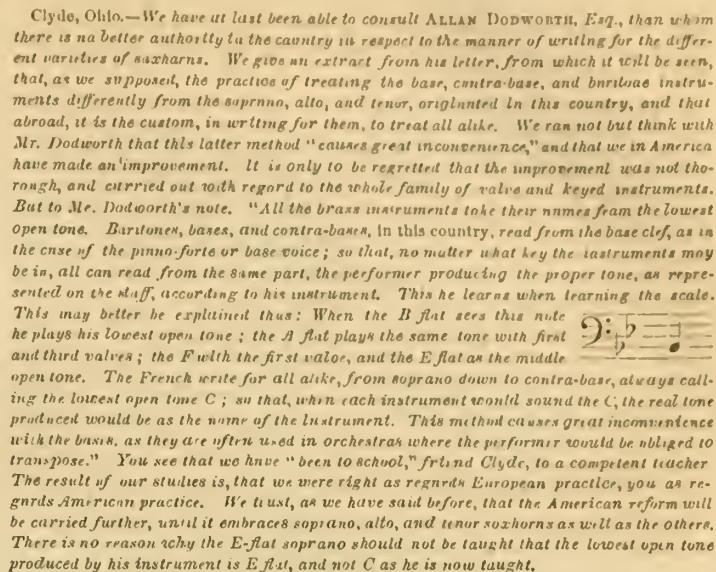 Clyde, Ohio.—We have at last been able to consult ALLAN DODWORTH, Esq., than whom
there is no better authority in the country in respect to the manner of writing for the differ-
ent varieties of saxharns. We give an extract from his letter, from which it will be seen,
that, as we supposed, the practice of treating the base, contra-base, and baritone instru-
ments differently from the soprano, alto, and tenor, originated in this country, and that
abroad, it is the custom, in writing for them, to treat all alike. We can not but think with
Mr. Dodworth that this latter method "causes great inconvenience," and that we in America
have made an improvement. It is only to be regretted that the improvement was not tho-
rough, and carried out with regard to the whole family of valve and keyed instruments.
But to Mr. Dodworth's note. "All the brass instruments take their names from the lowest
open tone. Baritones, bases, and contra-bases, in this country, read from the base clef, as in
the case of the piano-forte or base voice; so that, no matter what key the instruments may
be in, all can read from the same part, the performer producing the proper tone, as repre-
sented on the staff, according to his instrument. This he learns when learning the scale.
This may better be explained thus: When the B flat sees this note
he plays his lowest open tone; the A flat plays the same tone with first
and third valves; the F with the first valve, and the E flat as the middle
open tone. The French write for all alike, from soprano down to contra-base, always call-
ing the lowest open tone C; so that, when each instrument would sound the C, the real tone
produced would be as the name of the Instrument. This method causes great inconvenience
with the basses, as they are often used in orchestras where the performer would be obliged to
transpose." You see that we have "been to school," friend Clyde, to a competent teacher
The result of our studies is, that we were right as regards European practice, you as re-
gards American practice. We trust, as we have said before, that the American reform will
be carried further, until it embraces soprano, alto, and tenor saxhorns as well as the others.
There is no reason why the E-flat soprano should not be taught that the lowest open tone
produced by his instrument is E flat, and not C as he is now taught.